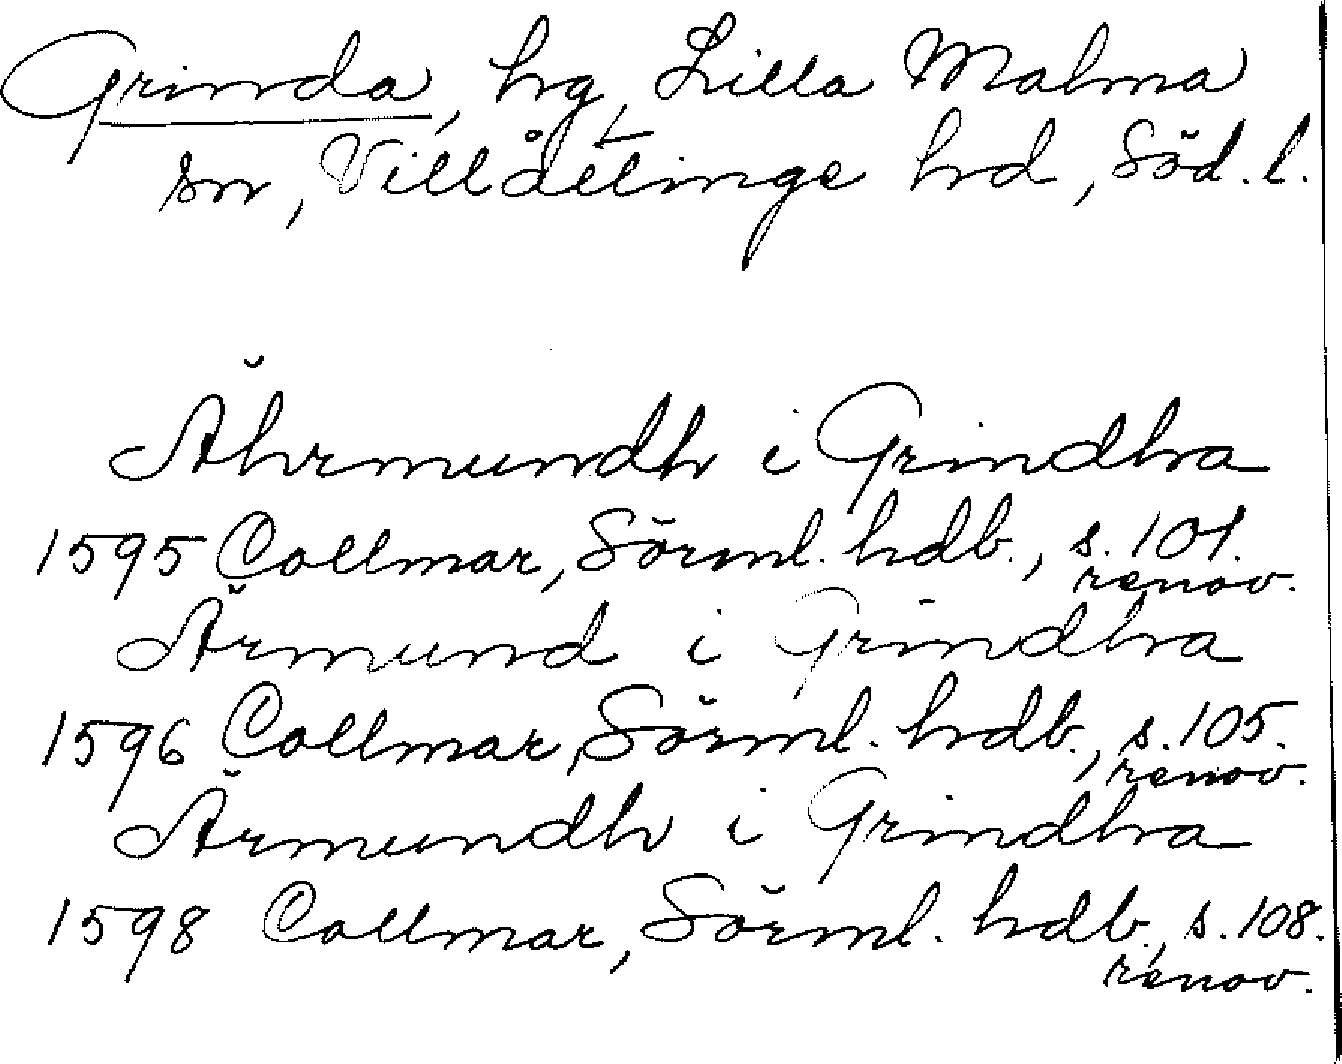 Grinda, hg, Lilla Malma
sn, Villåttinge hd, Söd. l.
Ährmundh i Grindha
1595 Collmar, Sörml. hdb., s. 101.
renov.
Ärmund i Grindha
1596 Collmar, Sörml. hdb., s. 105.
renov.
Ärmundh i Grindha
1598 Collmar, Sörml. hdb., s. 108.
renov.